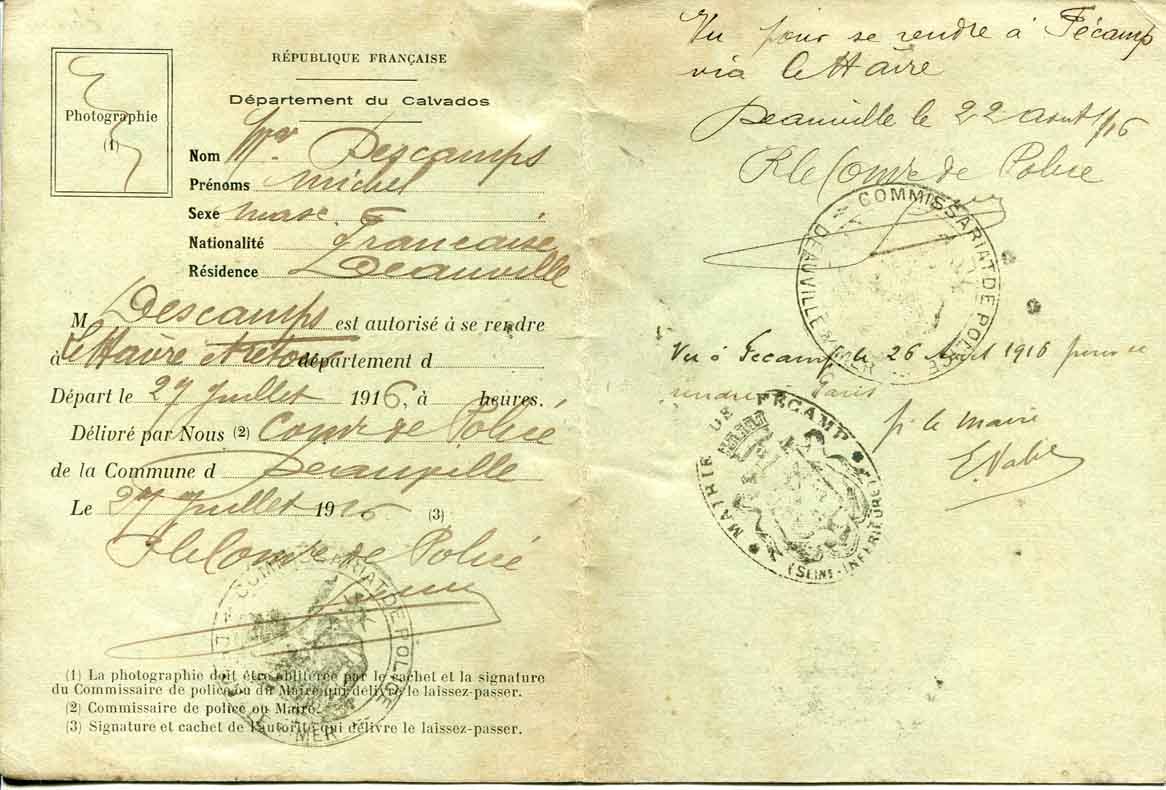 RÉPUBLIQUE FRANÇAISE
Département du Calvados
Photographie
(1)
Nom Mr Descamps
Prénoms Michel
Sexe masc
Nationalité Francaise
Résidence Deauville
M Descamps est autorisé à se rendre
à Le Havre et retour département d
Départ le 27 Juillet 1916, à heures.
Délivré par Nous (2) Comre de Police
de la Commune d Deauville
Le 27 Juillet 1916 (3)
P le Comre de Police
COMMISSARIAT DE POLICE
MER
(1) La photographie doit être oblitérée par le cachet et la signature
du Commissaire de police ou du Maire qui délivre le laissez-passer.
(2) Commissaire de police ou Maire.
(3) Signature et cachet de l'autorité qui délivre le laissez-passer.
Vu pour se rendre à Fécamp
via le Havre
Deauville le 22 aout 1916
P le Comre de Police
COMMISSARIAT DE POLICE
DEAUVILLE S/ MER
Vu à Fécamp le 26 Aout 1916 pour se
rendre à Paris
p. le Maire
MAIRIE DE FÉCAMP
(SEINE-INFÉRIEURE)